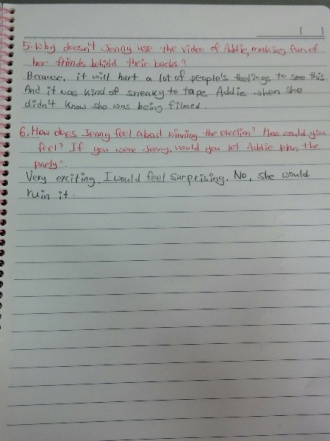 5. Why doesn't Jenny use the video of Addie, making fun of
her friends behind their backs?
Because, it will hurt a lot of people's feelings to see this
And it was kind of sneaky to tape Addie when she
didn't know she was being filmed
6. How does Jenny feel about winning the election? How would you
feel? If you were Jenny, would you let Addie plan the
party?
Very exciting. I would feel surprising. No, she would
ruin it.